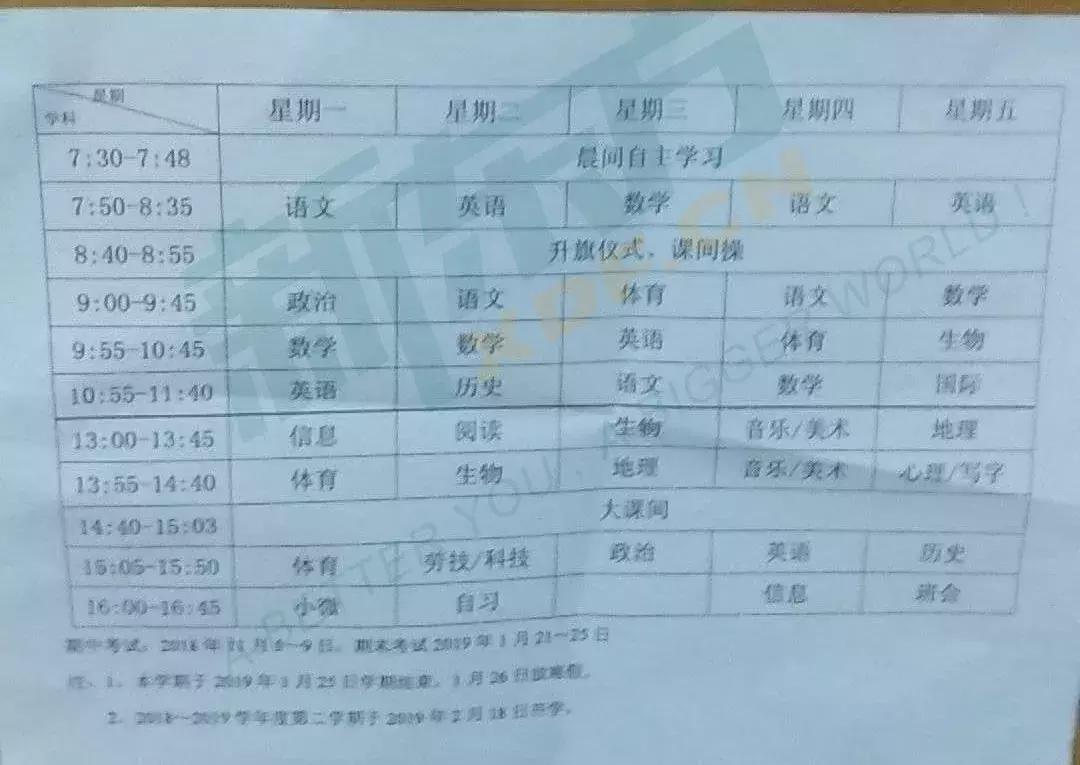 星期
学科
星期一 星期二 星期三 星期四 星期五
7:30-7:48 晨间自主学习
7:50-8:35 语文 英语 数学 语文 英语
8:40-8:55 升旗仪式、课间操
9:00-9:45 政治 语文 体育 语文 数学
9:55-10:45 数学 数学 英语 体育 生物
10:55-11:40 英语 历史 语文 数学 国际
13:00-13:45 信息 阅读 生物 音乐/美术 地理
13:55-14:40 体育 生物 地理 音乐/美术 心理/写字
14:40-15:03 大课间
15:05-15:50 体育 劳技/科技 政治 英语 历史
16:00-16:45 小微 自习 信息 班会
期中考试:2018年11月8~9日。期末考试2019年1月21~25日
注、1、本学期于2019年1月25日学期结束。1月26日放寒假。
2、2018~2019学年度第二学期于2019年2月18日开学。
新东方
XDF.CN
A BETTER YOU, A BIGGER WORLD!